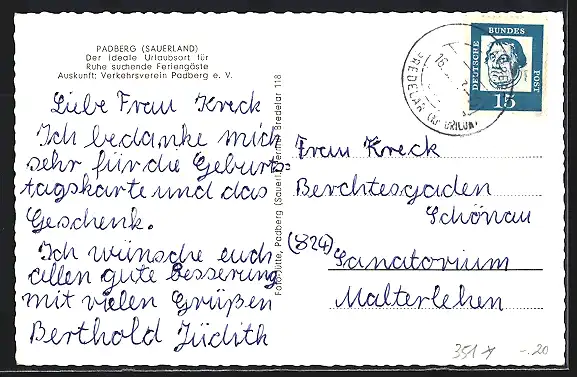 PADBERG (SAUERLAND)
Der ideale Urlaubsort für
Ruhe suchende Feriengäste
Auskunft: Verkehrsverein Padberg e. V.
Liebe Frau Kreck
Ich bedanke mich
sehr für die Geburts-
tagskarte und das
Geschenk.
Ich wünsche euch
allen gute besserung
mit vielen Grüßen
Berthold Judith
Padberg (Sauerl.) Bredelar 118
BREDELAR (Kr BRILON)
DEUTSCHE BUNDES POST
LUTHER
15
Frau Kreck
Berchtesgaden
Schönau
(824)
Sanatorium
Malterlehen
351
-.20